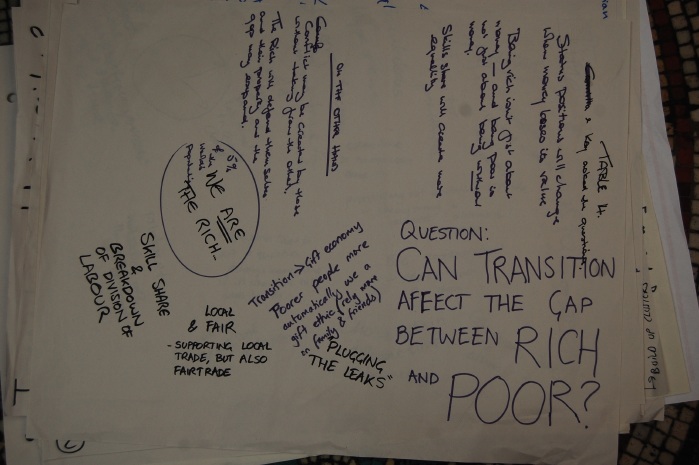 QUESTION:
CAN TRANSITION
AFFECT THE GAP
BETWEEN RICH
AND POOR?
TABLE 4.
& Key asked the question
Status positions will change
when money loses its value
Being rich isn't just about
money – and being poor is
not just about being without
money.
Skills share will create more
equality
ON THE OTHER HAND
Conflict may be created by those
without taking from the other.
The Rich will defend themselves
and their property and the
gap may expand.
WE ARE
THE RICH
5%
of the
world's
population
Transition → Gift economy
Poorer people more
automatically use a
gift ethic (rely more
on family & friends)
"PLUGGING
THE LEAKS"
LOCAL
& FAIR
- SUPPORTING LOCAL
TRADE, BUT ALSO
FAIRTRADE
SKILL SHARE
&
BREAKDOWN
OF DIVISION OF
LABOUR
BUILD UP